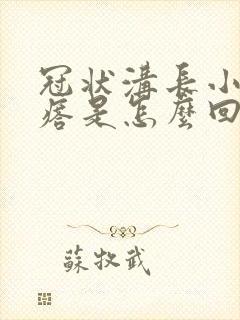 冠状溝長小
痞是怎麼回
蘇牧武